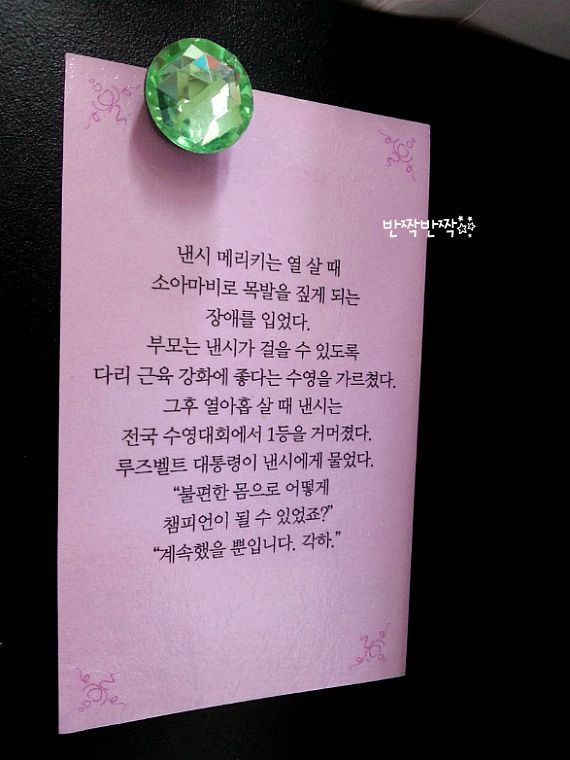 반짝반짝
낸시 메리키는 열 살 때
소아마비로 목발을 짚게 되는
장애를 입었다.
부모는 낸시가 걸을 수 있도록
다리 근육 강화에 좋다는 수영을 가르쳤다.
그후 열아홉 살 때 낸시는
전국 수영대회에서 1등을 거머졌다.
루즈벨트 대통령이 낸시에게 물었다.
“불편한 몸으로 어떻게
챔피언이 될 수 있었죠?”
“계속했을 뿐입니다. 각하.”